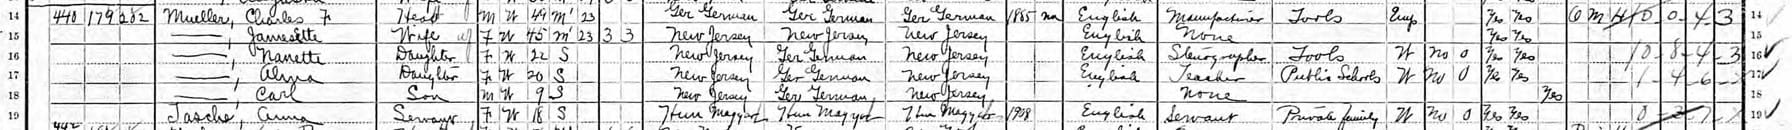 14 440 179 282 Mueller, Charles F Head M W 49 M 23 Ger German Ger German Ger German 1885 na English Manufacturer Tools Emp Yes Yes O M H 10-0-4-3 14
15 ——, Jamesette Wife F W 45 M 23 3 3 New Jersey New Jersey New Jersey English None Yes Yes 15
16 ——, Nanette Daughter F W 22 S New Jersey Ger German New Jersey English Stenographer Tools W No 0 Yes Yes 10-8-4-3 16
17 ——, Alma Daughter F W 20 S New Jersey Ger German New Jersey English Teacher Public Schools W No 0 Yes Yes 1-4-6- 17
18 ——, Carl Son M W 9 S New Jersey Ger German New Jersey None Yes 18
19 Tasche, Anna Servant F W 18 S Hun Magyar Hun Magyar Hun Magyar 1908 English Servant Private family W No 0 Yes Yes 19